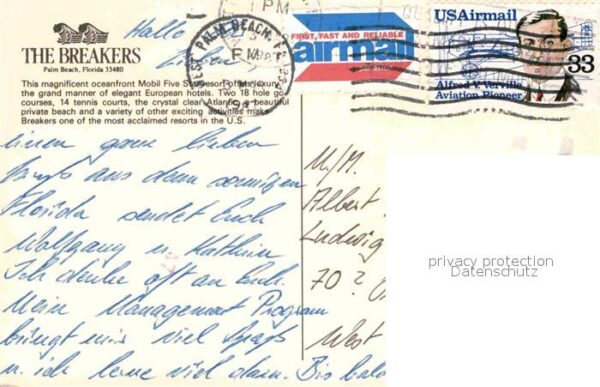 Hallo
Lieben
THE BREAKERS
Palm Beach, Florida 33480
This magnificent oceanfront Mobil Five Star resort offers luxury in
the grand manner of elegant European hotels. Two 18 hole golf
courses, 14 tennis courts, the crystal clear Atlantic, a beautiful
private beach and a variety of other exciting activities make
Breakers one of the most acclaimed resorts in the U.S.
PM
WEST PALM BEACH, FL
PM
FIRST, FAST AND RELIABLE
airmail
USAirmail
33
Alfred V. Verville
Aviation Pioneer
einen ganz lieben
Gruß aus dem sonnigen
Florida sendet Euch
Wolfgang u. Kathrin
Ich denke oft an Euch.
Mein Management Program
bringt mir viel Spaß
u. ich lerne viel dazu. Bis bald
M./M.
Albert
Ludwig
70
West
privacy protection
Datenschutz